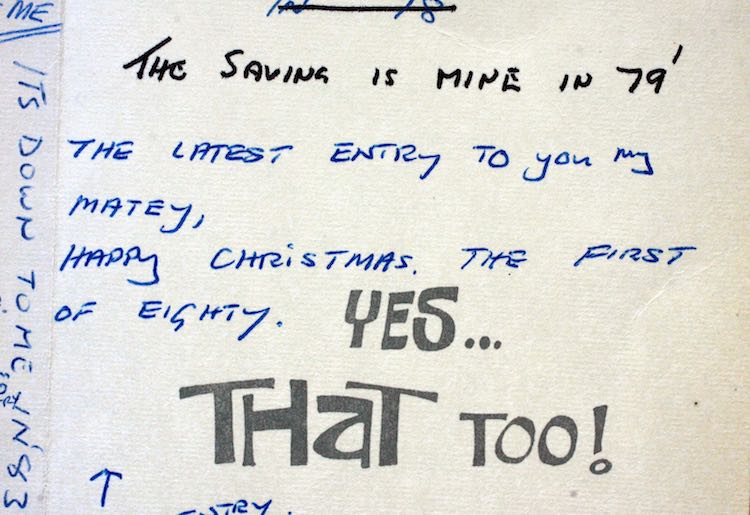 ME
IN 78
THE SAVING IS MINE IN 79'
THE LATEST ENTRY TO you my
MATEY,
HAPPY CHRISTMAS. THE FIRST
OF EIGHTY.
YES...
THAT TOO!
ENTRY.
ITS DOWN TO ME IN '83